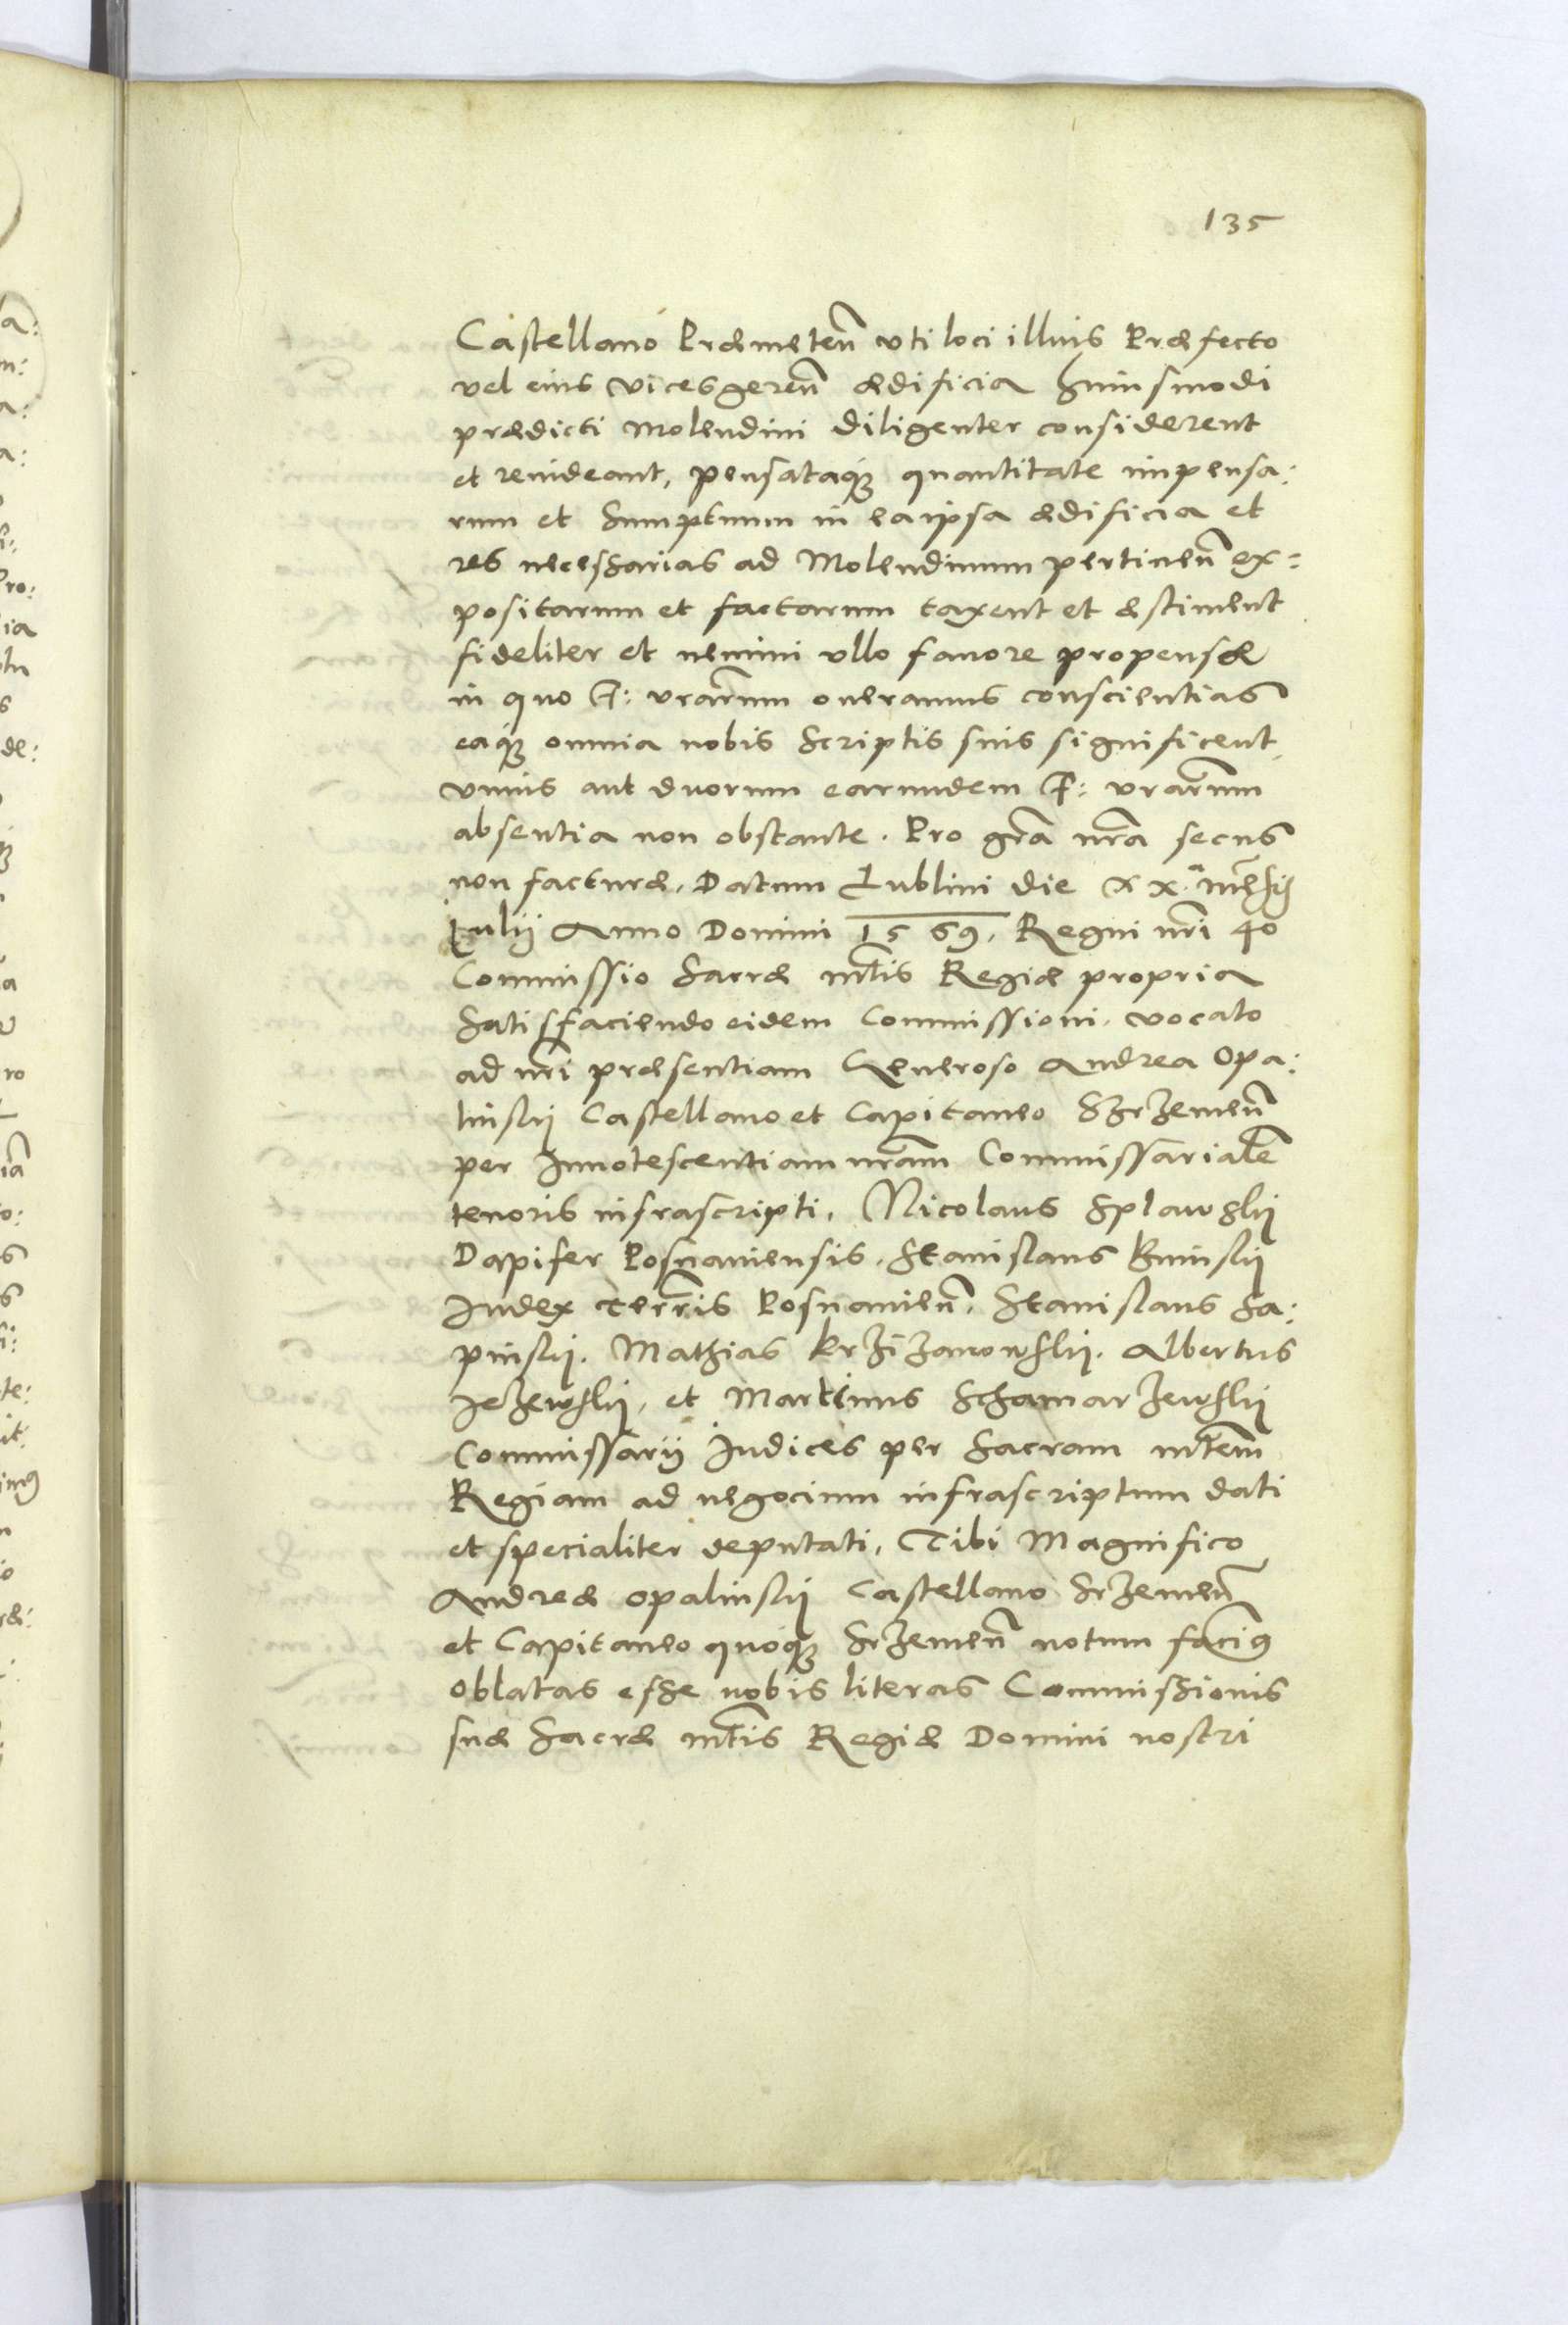 135
Castellano Præmeten̄ vti loci illius Præfecto
vel eius vicesgeren̄ ædificia huiusmodi
prædicti Molendini diligenter considerent
et reuideant, pensataq̨ quantitate impensa:
rum et Sumptuum in ea ipsa ædificia et
res necessarias ad Molendinum pertinen̄ ex=
positarum et factarum taxent et æstiment
fideliter et nemini vllo fauore propensæ
in quo F: vrārum oneramus conscientias
eaq̨ omnia nobis Scriptis suis significent,
vnius aut duorum earundem F: vrārum
absentia non obstante. Pro grā nrā secus
non facturæ. Datum Lublini die XX.ᵃ mēsis
Iulij Anno Domini 1569. Regni nrī 40
Commissio Sacræ Mtīs Regiæ propria
Satisfaciendo eidem Commissioni. vocato
ad nrī præsentiam Generoso Andrea Opa:
linskij Castellano et Capitaneo Szrzemen̄
per Innotescentiam nrām Commissarialē
tenoris infrascripti. Nicolaus Splawskij
Dapifer Posnaniensis. Stanislaus
Iudex terrīs Posnanien̄. Stanislaus Sa:
pinskij. Mathias Krzizanowskij. Albertus
Jezewskij, et Martinus Schamarzewskij
Commissarij Iudices per Sacram Mtēm
Regiam ad negocium infrascriptum dati
et specialiter deputati, Tibi Magnifico
Andreæ Opalinskij Castellano Srzemen̄
et Capitaneo quoq̨ Srzemen̄ notum facimꝰ
Oblatas esse nobis literas Commissionis
suæ Sacræ Mtīs Regiæ Domini nostri